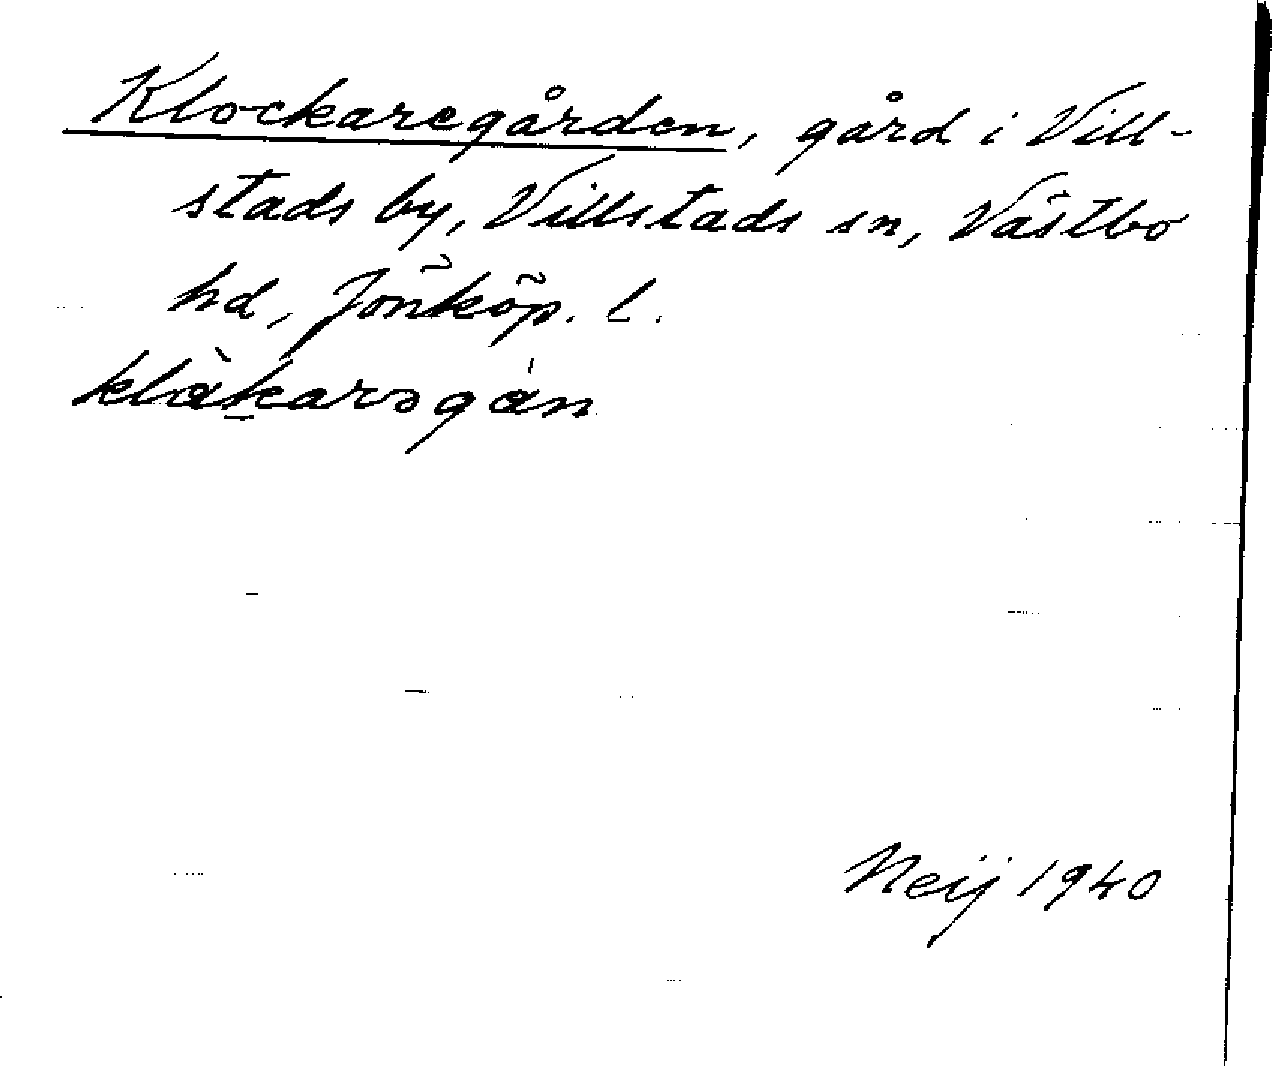 Klockaregården, gård i Vill-
stads by, Villstads sn, Västbo
hd, Jönköp. l.
klàk̲arəgán
Neij 1940